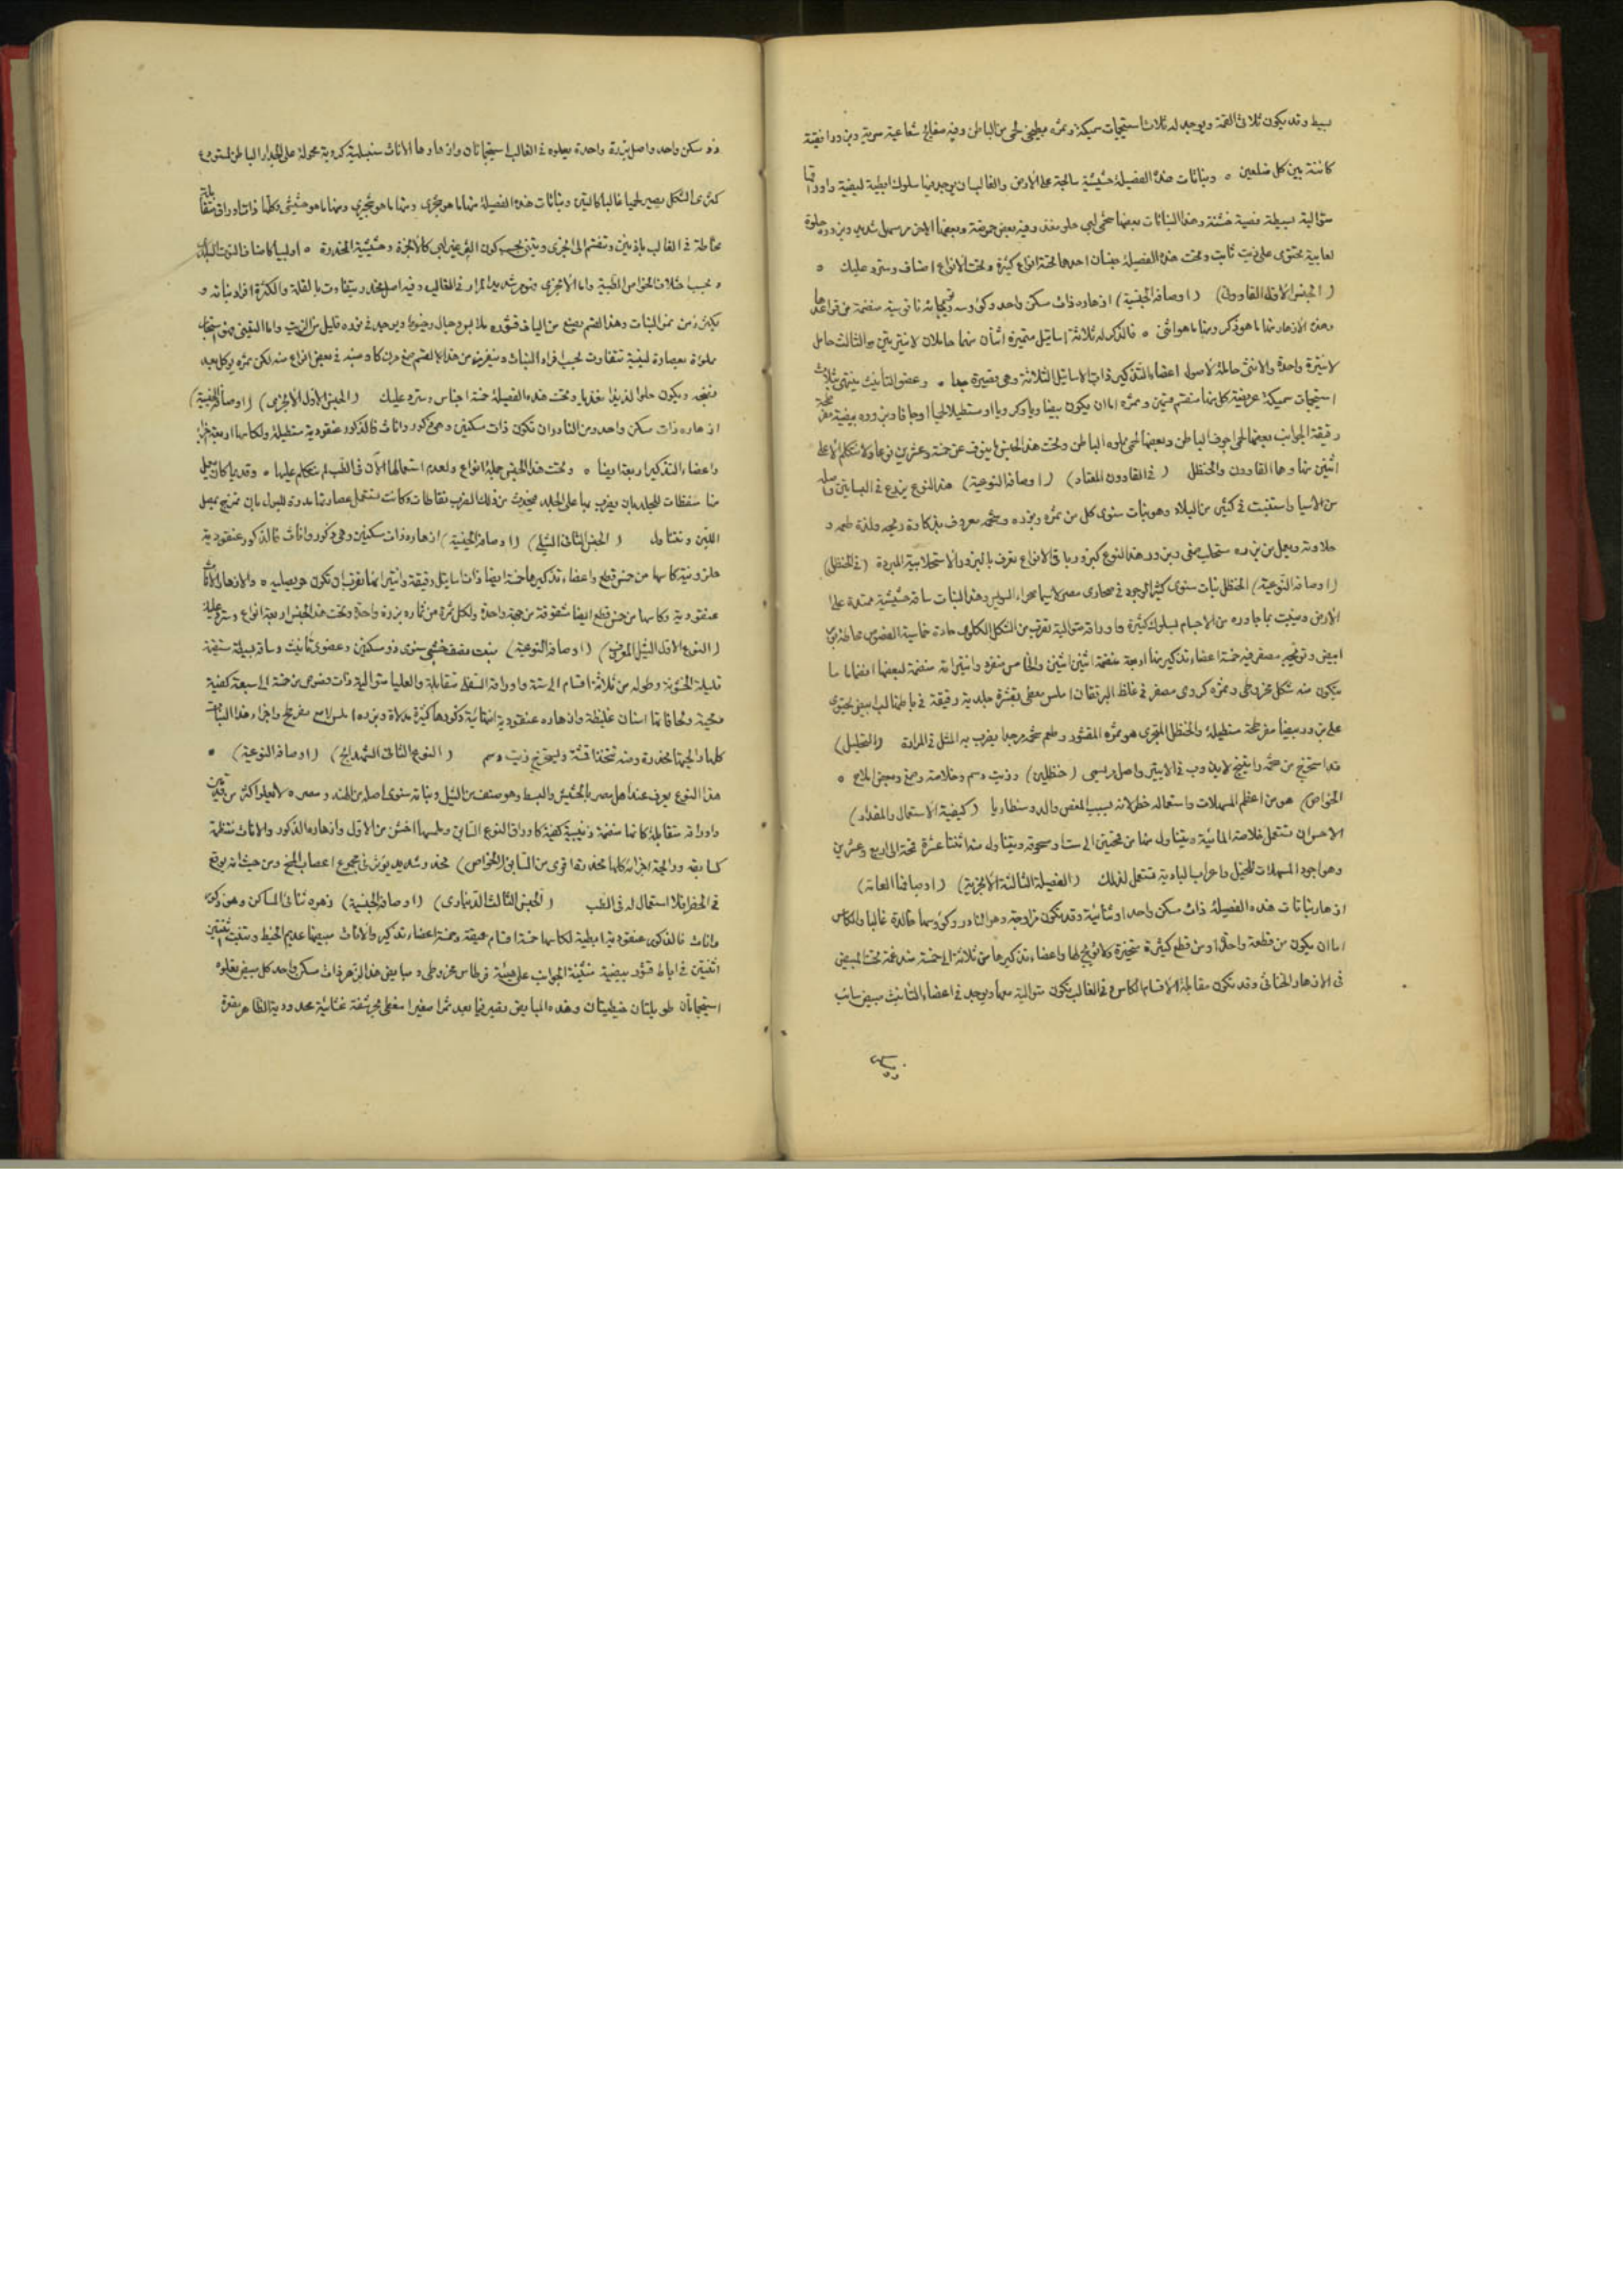 بسيط وقد يكون ثلاثى القمة ويوجد له ثلاث استيجمات سميكة وثمره بطيخى لحمى من الباطن وفيه مفالج شعاعية سرية وبزور افقية
كائنة بين كل ضلعين ٥ ونباتات هذه الفصيلة حشيشية سائحة على الارض والغالب ان يوجد فيها سلوك ابطية ليفية واوراقها
متوالية بسيطة فصية خشنة وهذا النباتات بعضها شحمى لبى حلو مغذ وفيه بعض حموضة وبعضها مر مسهل شديد وبزوره حلوة
لعابية تحتوى على زيت ثابت وتحت هذه الفصيلة جنسان احدهما تحته انواع كثيرة وتحت الانواع اصناف وسترد عليك ٥
( الجنس الاول القاوون) (اوصافه الجنسية) ازهاره ذات سكن واحد وكؤوسه وتويجاته ناقوسية منضمة من قواعدها
وهذه الازهار منها ما هو ذكر ومنها ما هو انثى ٥ فالذكر له ثلاثة اساتيل متميزة اثنان منها حاملان لانتيرتين والثالث حامل
لانتيرة واحدة والانثى حاملة لاصول اعضاء التذكير ذات الاساتيل الثلاثة وهى قصيرة جدا ٥ وعضو التأنيث ينتهى بثلاث
استيجمات سميكة عريضة كل منها منقسم قسمين وثمره اما ان يكون بيضاويا وكرويا او مستطيلا لحميا او جافا وبزوره بيضية مفرطحة
رقيقة الجوانب بعضها لحمى اجوف الباطن وبعضها لحمى مملوء الباطن وتحت هذا الجنس ما ينوف عن خمسة وعشرين نوعا ولا نتكلم الا على
اثنين منها وهما القاوون والحنظل ( فى القاوون المعتاد) (اوصافه النوعية) هذا النوع يزرع فى البساتين واصله
من الاسيا واستنبت فى كثير من البلاد وهو نبات سنوى كل من ثمره وبزره وشحمه معروف بذكاوة ريحه ولذة طعمه و
حلاوته ويعمل من بزره مستحلب صفى وبزور هذا النوع كبزور باقى الانواع تعرف بالبزور الاستحلابية المبردة (فى الحنظل)
(اوصافه النوعية) الحنظل نبات سنوى كثير الوجود فى صحارى مصر لاسيما صحراء السويس وهذا النبات ساقه حشيشية ممتدة على
الارض ومثبت بما جاوره من الاجسام بسلوك كثيرة واوراقه متوالية تقرب من الشكل الكلوى حادة خماسية الفصوص محاطة بوبر
ابيض وتويجه مصفر فيه خمسة اعضاء تذكير منها اربعة منضمة اثنين اثنين والخامس منفرد وانتيراته منضمة لبعضها انضماما ما
يتكون منه شكل مخروطى وثمره كروى مصفر فى غلظ البرتقان املس مغطى بقشرة جلدية رقيقة فى باطنها لب ابيض يحتوى
على بزور بيضا مفرطحة مستطيلة والحنظل المتجرى هو ثمره المقشور وطعم شحمه مر جدا يضرب به المثل فى المرارة (التحليل)
قد استخرج من شحمه راتينج لايذوب فى الايتير واصل مر يسمى (حنظلين) وزيت دسم وخلاصة وصمغ وبعض املاح ٥
الخواص) هو من اعظم المسهلات واستعماله خطر لانه يسبب المغص والدوسنطاريا (كيفية الاستعمال والمقدار)
الاحسن ان تستعمل خلاصته المائية ويتناول منها من قمحتين الى ست او مسحوقه ويتناول منه اثنتا عشرة قمحة الى اربع وعشرين
وهو اجود المسهلات للخيل واعراب البادية تستعمله لذلك (الفصيلة الثالثة الانجرية) (اوصافها العامة)
ازهار نباتات هذه الفصيلة ذات سكن واحد او ثنائية وقد تكون مزاوجة وهو النادر وكؤوسها خالدة غالبا والكاس
اما ان يكون من قطعة واحدة او من قطع كثيرة متحيزة ولا تويج لها واعضاء تذكيرها من ثلاثة الى خمسة مندغمة تحت المبيض
فى الازهار الخناثى وقد تكون مقابلة لاقسام الكاس وفى الغالب تكون متوالية معها ويوجد فى اعضاء التأنيث مبيض سائب
ذو سكن واحد واصل بزرة واحدة يعلوه فى الغالب استيجماتان وازهارها الاناث سنبلية كروية محمولة على الجدار الباطن لمستودع
كمثرى الشكل يصير لحميا غالبا كالتين ونباتات هذه الفصيلة منها ما هو شجرى ومنها ما هو شجيرى ومنها ما هو حشيشى وكلها ذات اوراق متقابلة
محاطة فى الغالب باذينين وتنقسم الى انجرى وتينى بحسب كون الثمر غير لبى كالانجرة وحشيشة المخدرة ٥ او لبيا كاصناف التوت البلدى
وبحسب اختلاف الخواص الطبية واما الانجرى فنوبر شديد المرار فى الغالب وفيه اصل مخدر يتفاوت بالقلة والكثرة افراد نباته و
يكثر زمن نمو النبات وهذا القسم يصنع من الياف قشوره ملابس وحبال وخيوط ويوجد فى بزره قليل من الزيت واما التينى فهو
مملوءة بعصارة لبنية تتفاوت بحسب افراد النبات وستعرفه من هذا القسم صمغ مرن كاوتشه فى بعض انواع منه لكن ثمره يؤكل بعد
نضجه ويكون حلوا لذيذا مغذيا وتحت هذه الفصيلة خمسة اجناس وسترد عليك (الجنس الاول الانجرى) (اوصافه الجنسية)
ازهاره ذات سكن واحد ومن النادر ان تكون ذات سكنين وهى ذكور واناث فالذكور عنقودية مستطيلة ولكاسها اربعة
واعضاء التذكير اربعة ايضا ٥ وتحت هذا الجنس جملة انواع ولعدم استعمالها الآن فى الطب لم نتكلم عليها ٥ وقديما كان يعمل
منها منفطات للجلد بان يضرب بها على الجلد فيحدث من ذلك الضرب نفاطات وكانت تستعمل عصارتها مدرة للبول بان تمزج بمصل
اللبن وتتناول ( الجنس الثانى التيلى) (اوصافه الجنسية) ازهاره ذات سكنين وهى ذكور واناث فالذكور عنقودية
حلزونية كاسها من خمس قطع واعضاء تذكيرها خمسة ايضا ذات اساتيل دقيقة وانتيراتها تقرب ان تكون حويصلية ٥ والازهار الاناث
عنقودية وكاسها من خمس قطع ايضا مشقوقة من جهة واحدة ولكل ثمرة من ثماره بزرة واحدة وتحت هذا الجنس اربعة انواع وسترد عليك
( النوع الاول التيل المعروف) (اوصافه النوعية) نبت نصف خشبى سنوى ذو سكنين وعضوى تأنيث وساقه بسيطة مستقيمة
قليلة الخشونة وطوله من ثلاثة اقسام الى ستة واوراقه السفلى متقابلة والعليا متوالية ذات فصوص من خمسة الى سبعة كفية
رمحية وبحافاتها اسنان غليظة وازهاره عنقودية انتهائية وذكورها كثيرة وبزره املس لامع مفرطح واجزاء هذا النبات
كلها رائحتها مخدرة ومنه تتخذ اقمشة ويستخرج زيت دسم ( النوع الثانى الشهدانج) (اوصافه النوعية) ٥
هذا النوع يعرف عند اهل مصر بالحشيش والبسط وهو صنف من التيل ونباته سنوى اصله من الهند ومصر ٥ لا يعلو اكثر من قدمين
واوراقه متقابلة كانها منضمة ذنيبية كفية كاوراق النوع السابق وملمسها اخشن من الاول وازهاره الذكور والاناث منتظمة
كسابقه ورائحة اجزائه كلها مخدرة اقوى من السابق (الخواص) مخدر وشديد يؤثر فى مجموع اعصاب المخ ومن حيث انه يوقع
فى الخطر فلا استعمال له فى الطب ( الجنس الثالث الدينارى) (اوصافه الجنسية) زهره ثنائى المساكن وهو ذكور
واناث فالذكور عنقودية ابطية لكاسها خمسة اقسام عميقة وخمسة اعضاء تذكير والاناث مبيضها عديم الخيط وتنبت ثنتين
اثنتين فى اباط قشور بيضية منثنية الجوانب على هيئة قرطاس مخروطى ومبايض هذا الزهر ذات سكن واحد كل مبيض يعلوه
استيجماتان طويلتان خيطيتان وهذه المبايض تصير فيما بعد ثمرا صغيرا مغطى بحرشفة غشائية محدودبة الظاهر مقعرة